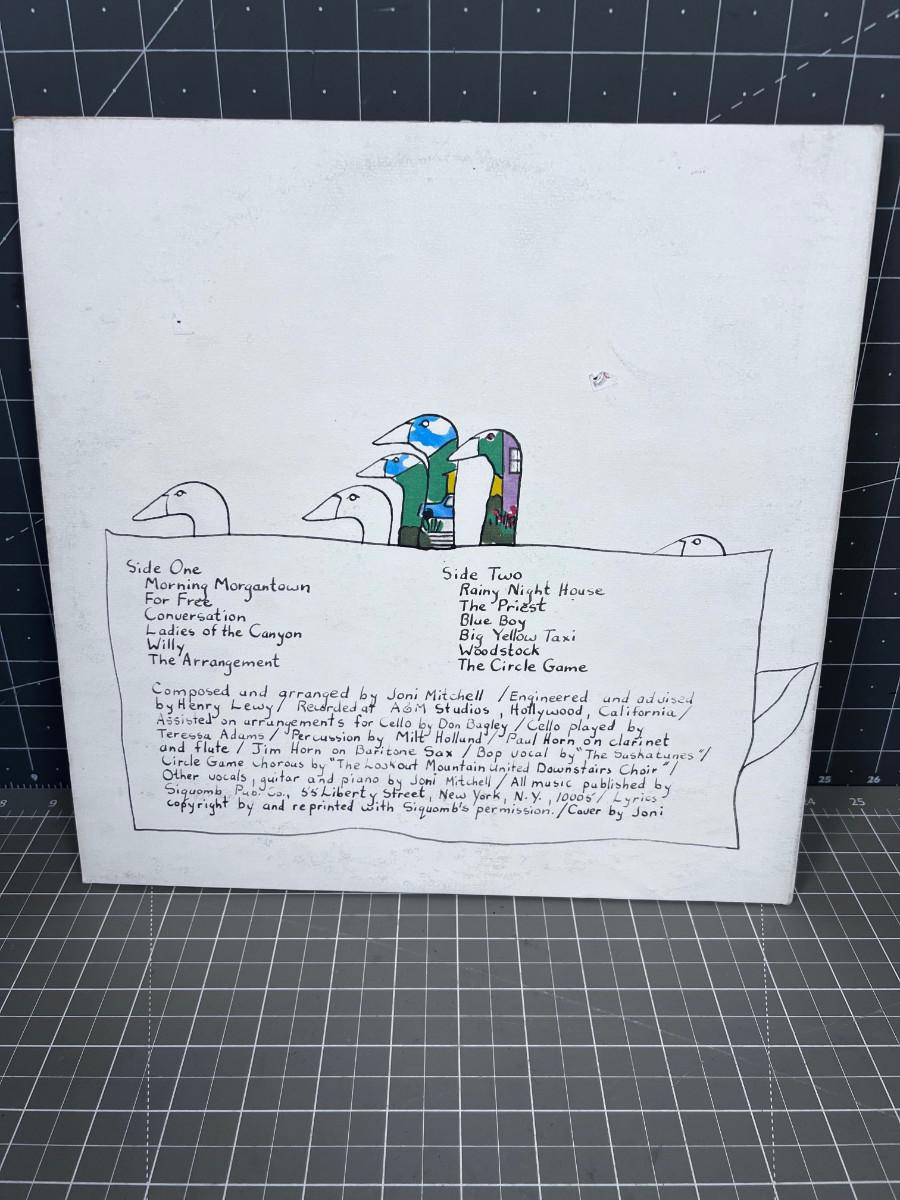 Side One
Morning Morgantown
For Free
Conversation
Ladies of the Canyon
Willy
The Arrangement
Side Two
Rainy Night House
The Priest
Blue Boy
Big Yellow Taxi
Woodstock
The Circle Game
Composed and arranged by Joni Mitchell / Engineered and advised
by Henry Lewy / Recorded at A&M Studios, Hollywood, California /
Assisted on arrangements for Cello by Don Bagley / Cello played by
Teressa Adams / Percussion by Milt Holland / Paul Horn on clarinet
and flute / Jim Horn on Baritone Sax / Bop vocal by "The Saskatunes" /
Circle Game Chorous by "The Lookout Mountain United Downstairs Choir" /
Other vocals, guitar and piano by Joni Mitchell / All music published by
Siquomb Pub. Co., 55 Liberty Street, New York, N.Y., 10005 / Lyrics
copyright by and reprinted with Siquomb's permission. / Cover by Joni
8 9
9
25 26
24 25